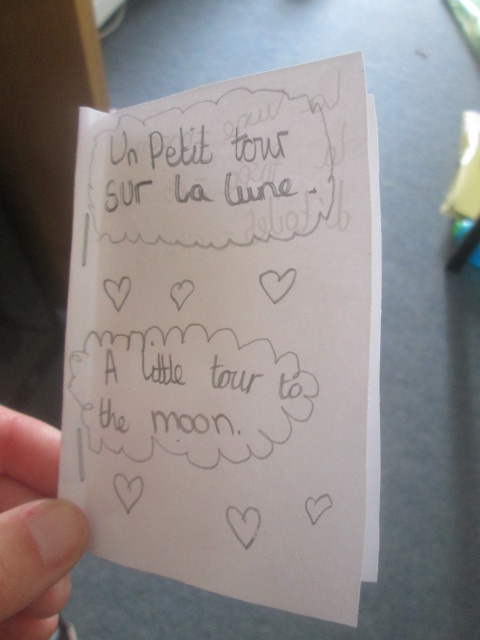 Un Petit tour
sur la lune.
A little tour to
the moon.